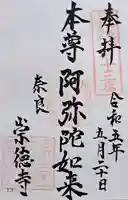 奉拝
令和五年
五月二十日
本尊 阿弥陀如来
奈良
崇徳寺